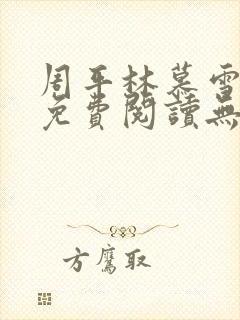 周平林慕雪
免費閱讀無
方鷹取